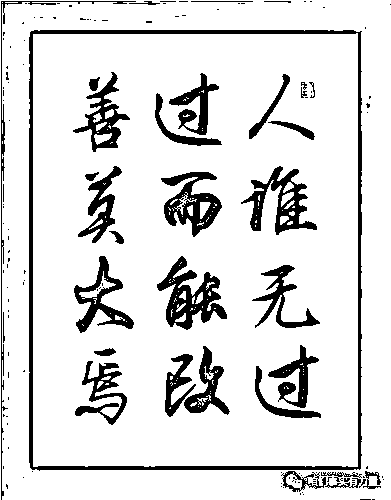 人谁无过
过而能改
善莫大焉